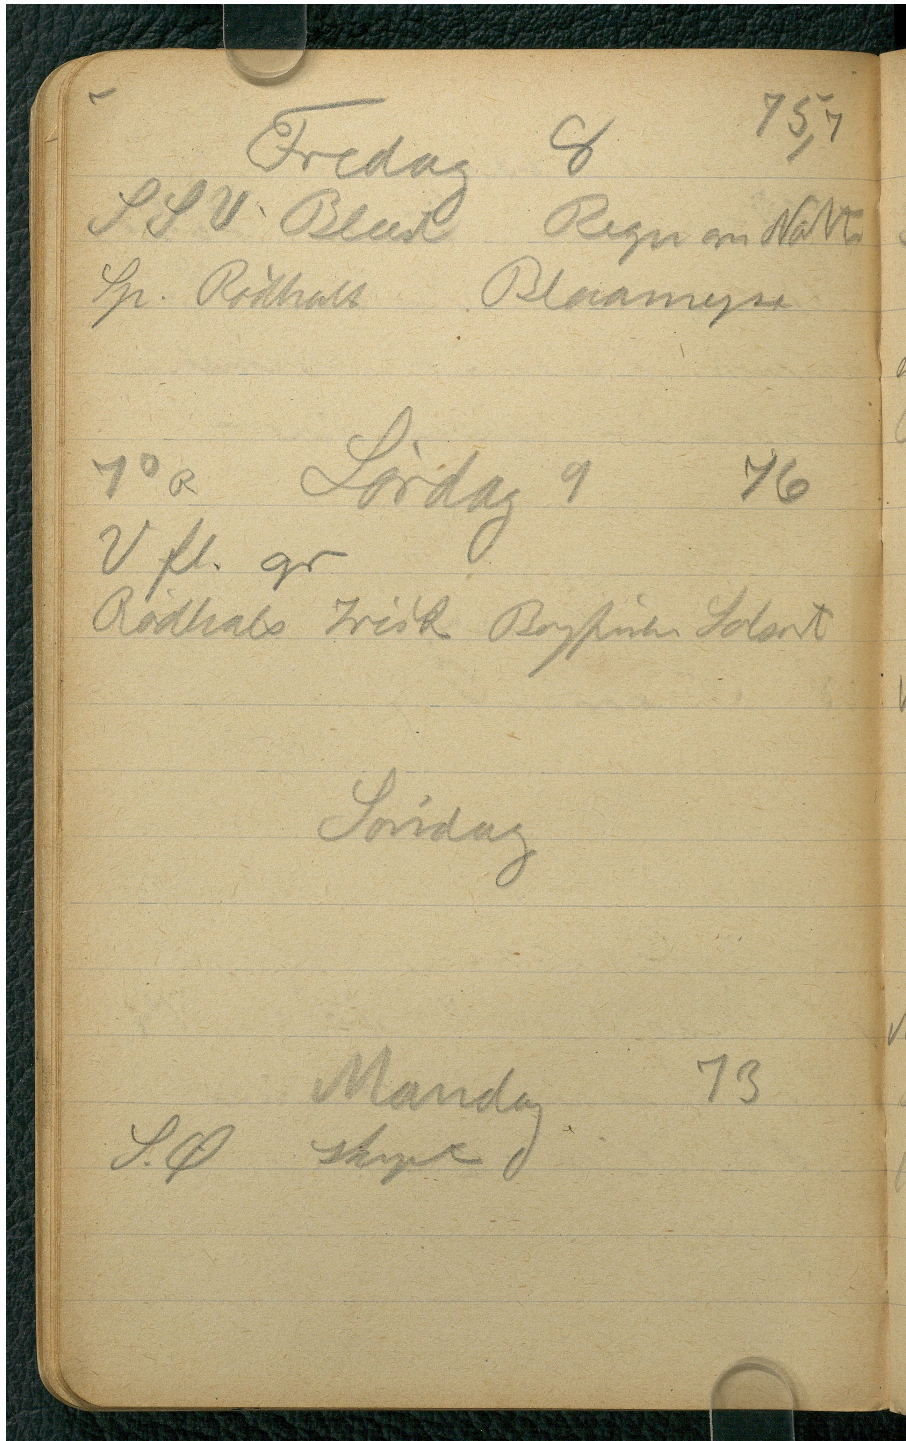 Fredag 8 75,7
S S V. Blæst Regn om Natten
Sp. Rødhals Blaamejse
7° R Lørdag 9 76
V fl. gr
Rødhals Irisk Bogfinke Solsort
Søndag
Mandag 73
S.Ø skyet